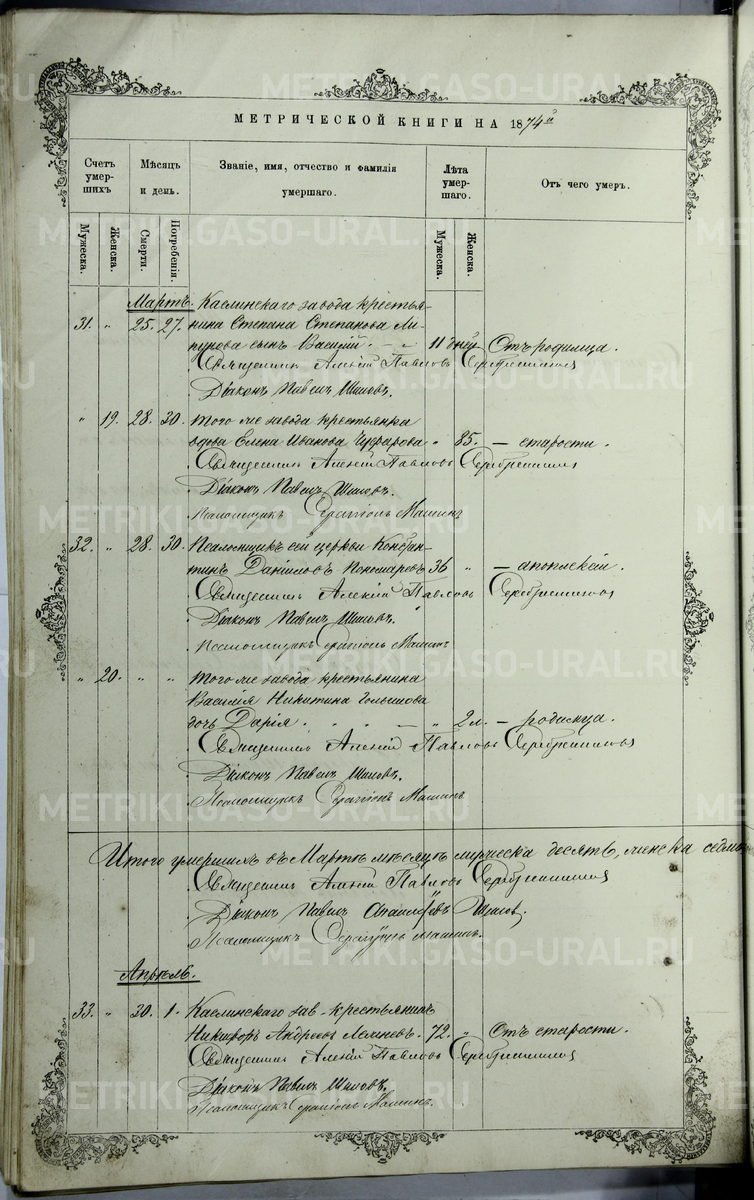 МЕТРИЧЕСКОЙ КНИГИ НА 1874й
Счетъ умер- шихъ
Мѣсяцъ и день.
Званіе, имя, отчество и фамилія умершаго.
Лѣта умер- шаго.
Отъ чего умеръ.
Мужеска.
Женска.
Смерти.
Погребенія.
Мужеска.
Женска.
Мартъ. Каслинскаго завода крестья-
31. " 25. 27. нина Степана Степанова
сынъ Василій. 11 дней Отъ родимца.
Священникъ Алексій Павловъ Серебренниковъ
Діаконъ Павелъ Шиловъ.
" 19. 28. 30. того же завода крестьянка
вдова Елена Иванова " 85. — старости.
Священникъ Алексій Павловъ Серебренниковъ
Діаконъ Павелъ Шиловъ.
Псаломщикъ Серапіонъ Машинъ
32. " 28. 30. Псаломщикъ сей церкви Констан-
тинъ Даніиловъ Пономаревъ 36 " —
Священникъ Алексій Павловъ Серебренниковъ
Діаконъ Павелъ Шиловъ.
Псаломщикъ Серапіонъ Машинъ
" 20. " " того же завода крестьянина
Василія Никитина Голышова
дочь Дарія. " 2 л. — родимца.
Священникъ Алексій Павловъ Серебренниковъ
Діаконъ Павелъ Шиловъ.
Псаломщикъ Серапіонъ Машинъ
Итого умершихъ въ Мартѣ мѣсяцѣ мужеска десять, женска седмь
Священникъ Алексій Павловъ Серебренниковъ
Діаконъ Павелъ Шиловъ
Псаломщикъ Серапіонъ Машинъ.
Апрѣль.
33. " 30. 1. Каслинскаго зав. крестьянинъ
Никифоръ Андреевъ 72. " Отъ старости.
Священникъ Алексій Павловъ Серебренниковъ
Діаконъ Павелъ Шиловъ.
Псаломщикъ Серапіонъ Машинъ.
METRIKI.GASO-URAL.RU